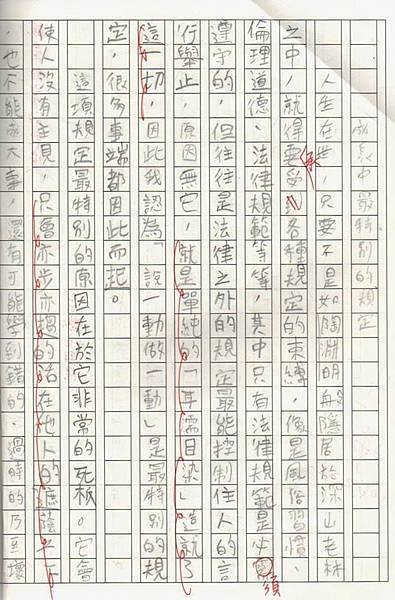 成長中最特別的規定
人生在世,只要不是如陶淵明般隱居於深山老林
之中,就得要承受各種規定的束縛,像是風俗習慣、
倫理道德、法律規範等等,其中只有法律規範是必須
遵守的,但往往是法律之外的規定最能控制住人的言
行舉止,原因無它,就是單純的「耳濡目染」造就了
這一切,因此我認為「說一動做一動」是最特別的規
定,很多事端都因此而起。
這項規定最特別的原因在於它非常的死板。它會
使人沒有主見,只會亦步亦趨的活在他人的遮蔭之下
,也不能成大事,還有可能學到錯的、過時的乃至壞